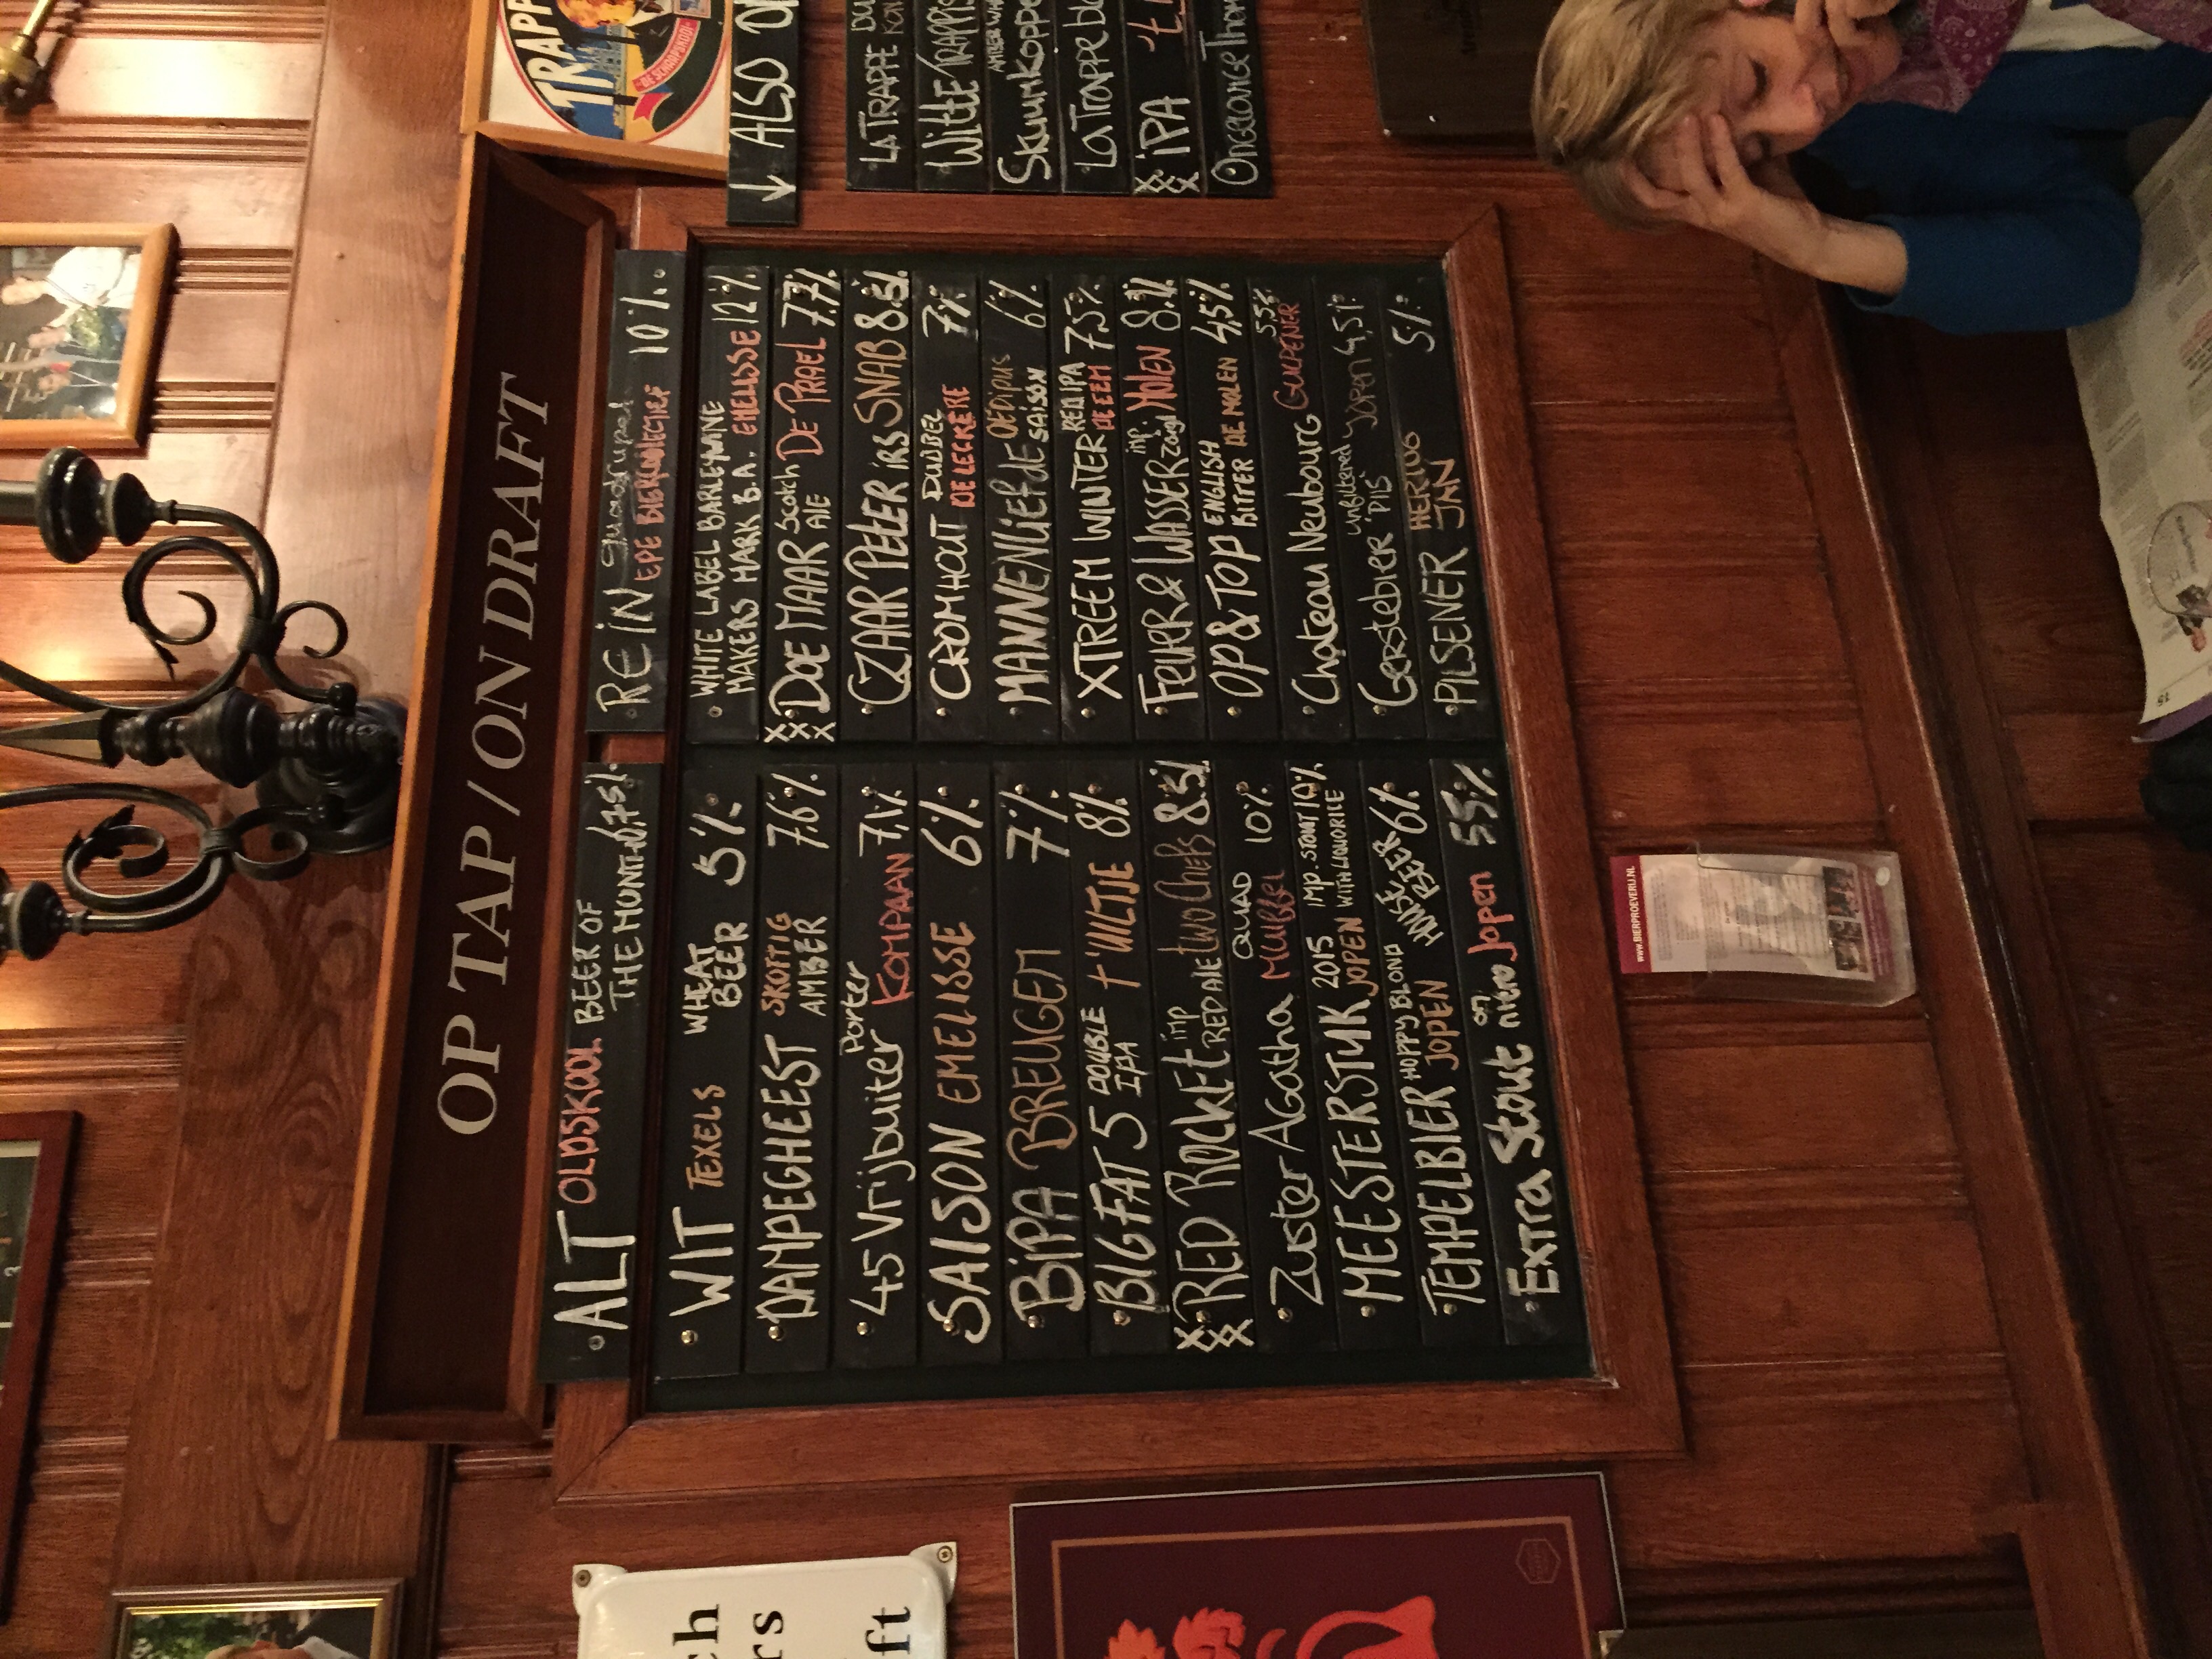 OP TAP / ON DRAFT
ALT OLDSKOOL BEER OF
THE MONTH 6,75%
WIT TEXELS WHEAT
BEER 5%
DAMPEGHEEST SKOTTIG
AMBER 7,6%
45 Vrijbuiter Porter
KOMPAAN 7,1%
SAISON EMELISSE 6%
BIPA BREUGEM 7%
BIG FAT 5 DOUBLE
IPA 't UILTJE 8%
RED ROCKET imp
RED ALE two Chefs 8.5%
Zuster Agatha QUAD
MUIFEL 10%
MEESTERSTUK 2015 IMP. STOUT 10%
JOPEN WITH LIQUORICE
TEMPELBIER HOPPY BLOND
JOPEN HOUSE
BEER 6%
EXTRA Stout on
nitro Jopen 5.5%
REIN Quadrupel
EPE BIERCOLLECTIEF 10%
WHITE LABEL BARLEWINE
MAKERS MARK B.A. EMELISSE 12%
DOE MAAR Scotch
Ale DE PRAEL 7.7%
CZAAR PETER iRS SNAB 8.5%
CROMHOUT DUBBEL
DE LECKERE 7%
MANNENLIEFDE OEDIPUS
SAISON 6%
XTREEM WINTER RED IPA
DE EEM 7,5%
Feuer & Wasser imp.
Zoigl MOLEN 8.%
OP & TOP ENGLISH
BITTER DE MOLEN 4,5%
Chateau Neubourg GULPENER 5,5%
Gerstebier unfiltered
pils JOPEN 4,5%
PILSENER HERTOG
JAN 5%
TRAPP
DE SCHAAPSKOOI
↓ ALSO
LA TRAPPE
Witte TRAPPIS
Skuumkoppe
La Trappe
IPA 't
Ongelange
www.BIERPROEVERIJ.NL
ch
rs
ft
15